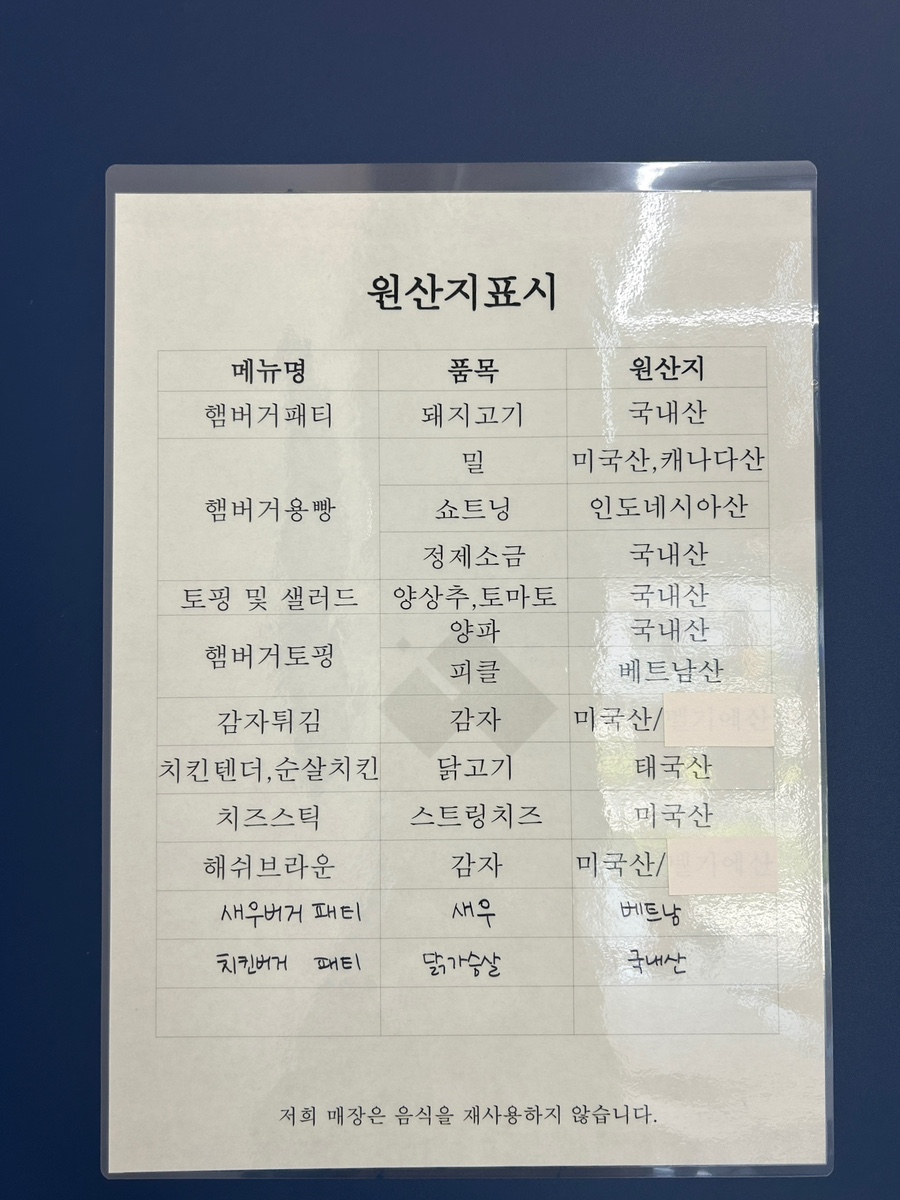 원산지표시
메뉴명 품목 원산지
햄버거패티 돼지고기 국내산
햄버거용빵 밀 미국산,캐나다산
쇼트닝 인도네시아산
정제소금 국내산
토핑 및 샐러드 양상추,토마토 국내산
햄버거토핑 양파 국내산
피클 베트남산
감자튀김 감자 미국산/
치킨텐더,순살치킨 닭고기 태국산
치즈스틱 스트링치즈 미국산
해쉬브라운 감자 미국산/
새우버거 패티 새우 베트남
치킨버거 패티 닭가슴살 국내산
저희 매장은 음식을 재사용하지 않습니다.